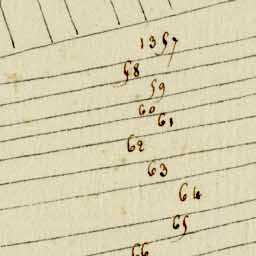 1357
58
59
60
61
62
63
64
65
66